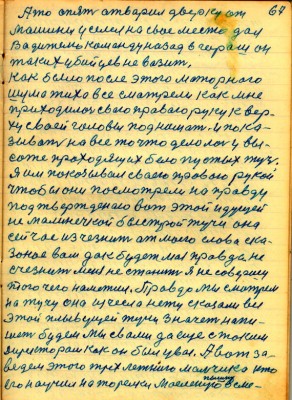 64
А то опять отварил дверку от
машини у селил на свое место дал
Вадителю команду назад в черащ он
таких убийцев не возит.
Как было после этого маторного
шума тихо все смотрели как мне
приходилос свою правою руку к вер-
ху своей головы поднимат. и пока-
зывать на все то что делалос у вы-
соте проходящих бело пустых туч.
Я им показывал своею правою рукой
чтобы они посмотрели на правду
подтверждёного вот этой идущей
не малинечкой быстрой тучи она
сейчас изчезнит от моего слова ска-
зоное вам дак будет моя правда. не
счезнит меня не станит я не совершу
того чего наметил. Правда мы смотрем
на тучу она изчесла нету сказали все
этой плывущей тучи Значет напи-
шет будем мы с вами да еще с таким
я история как он был у вас. А вот за-
ведем этого трёх летнего мальчика кто
его научил на торелки Малешую пошли